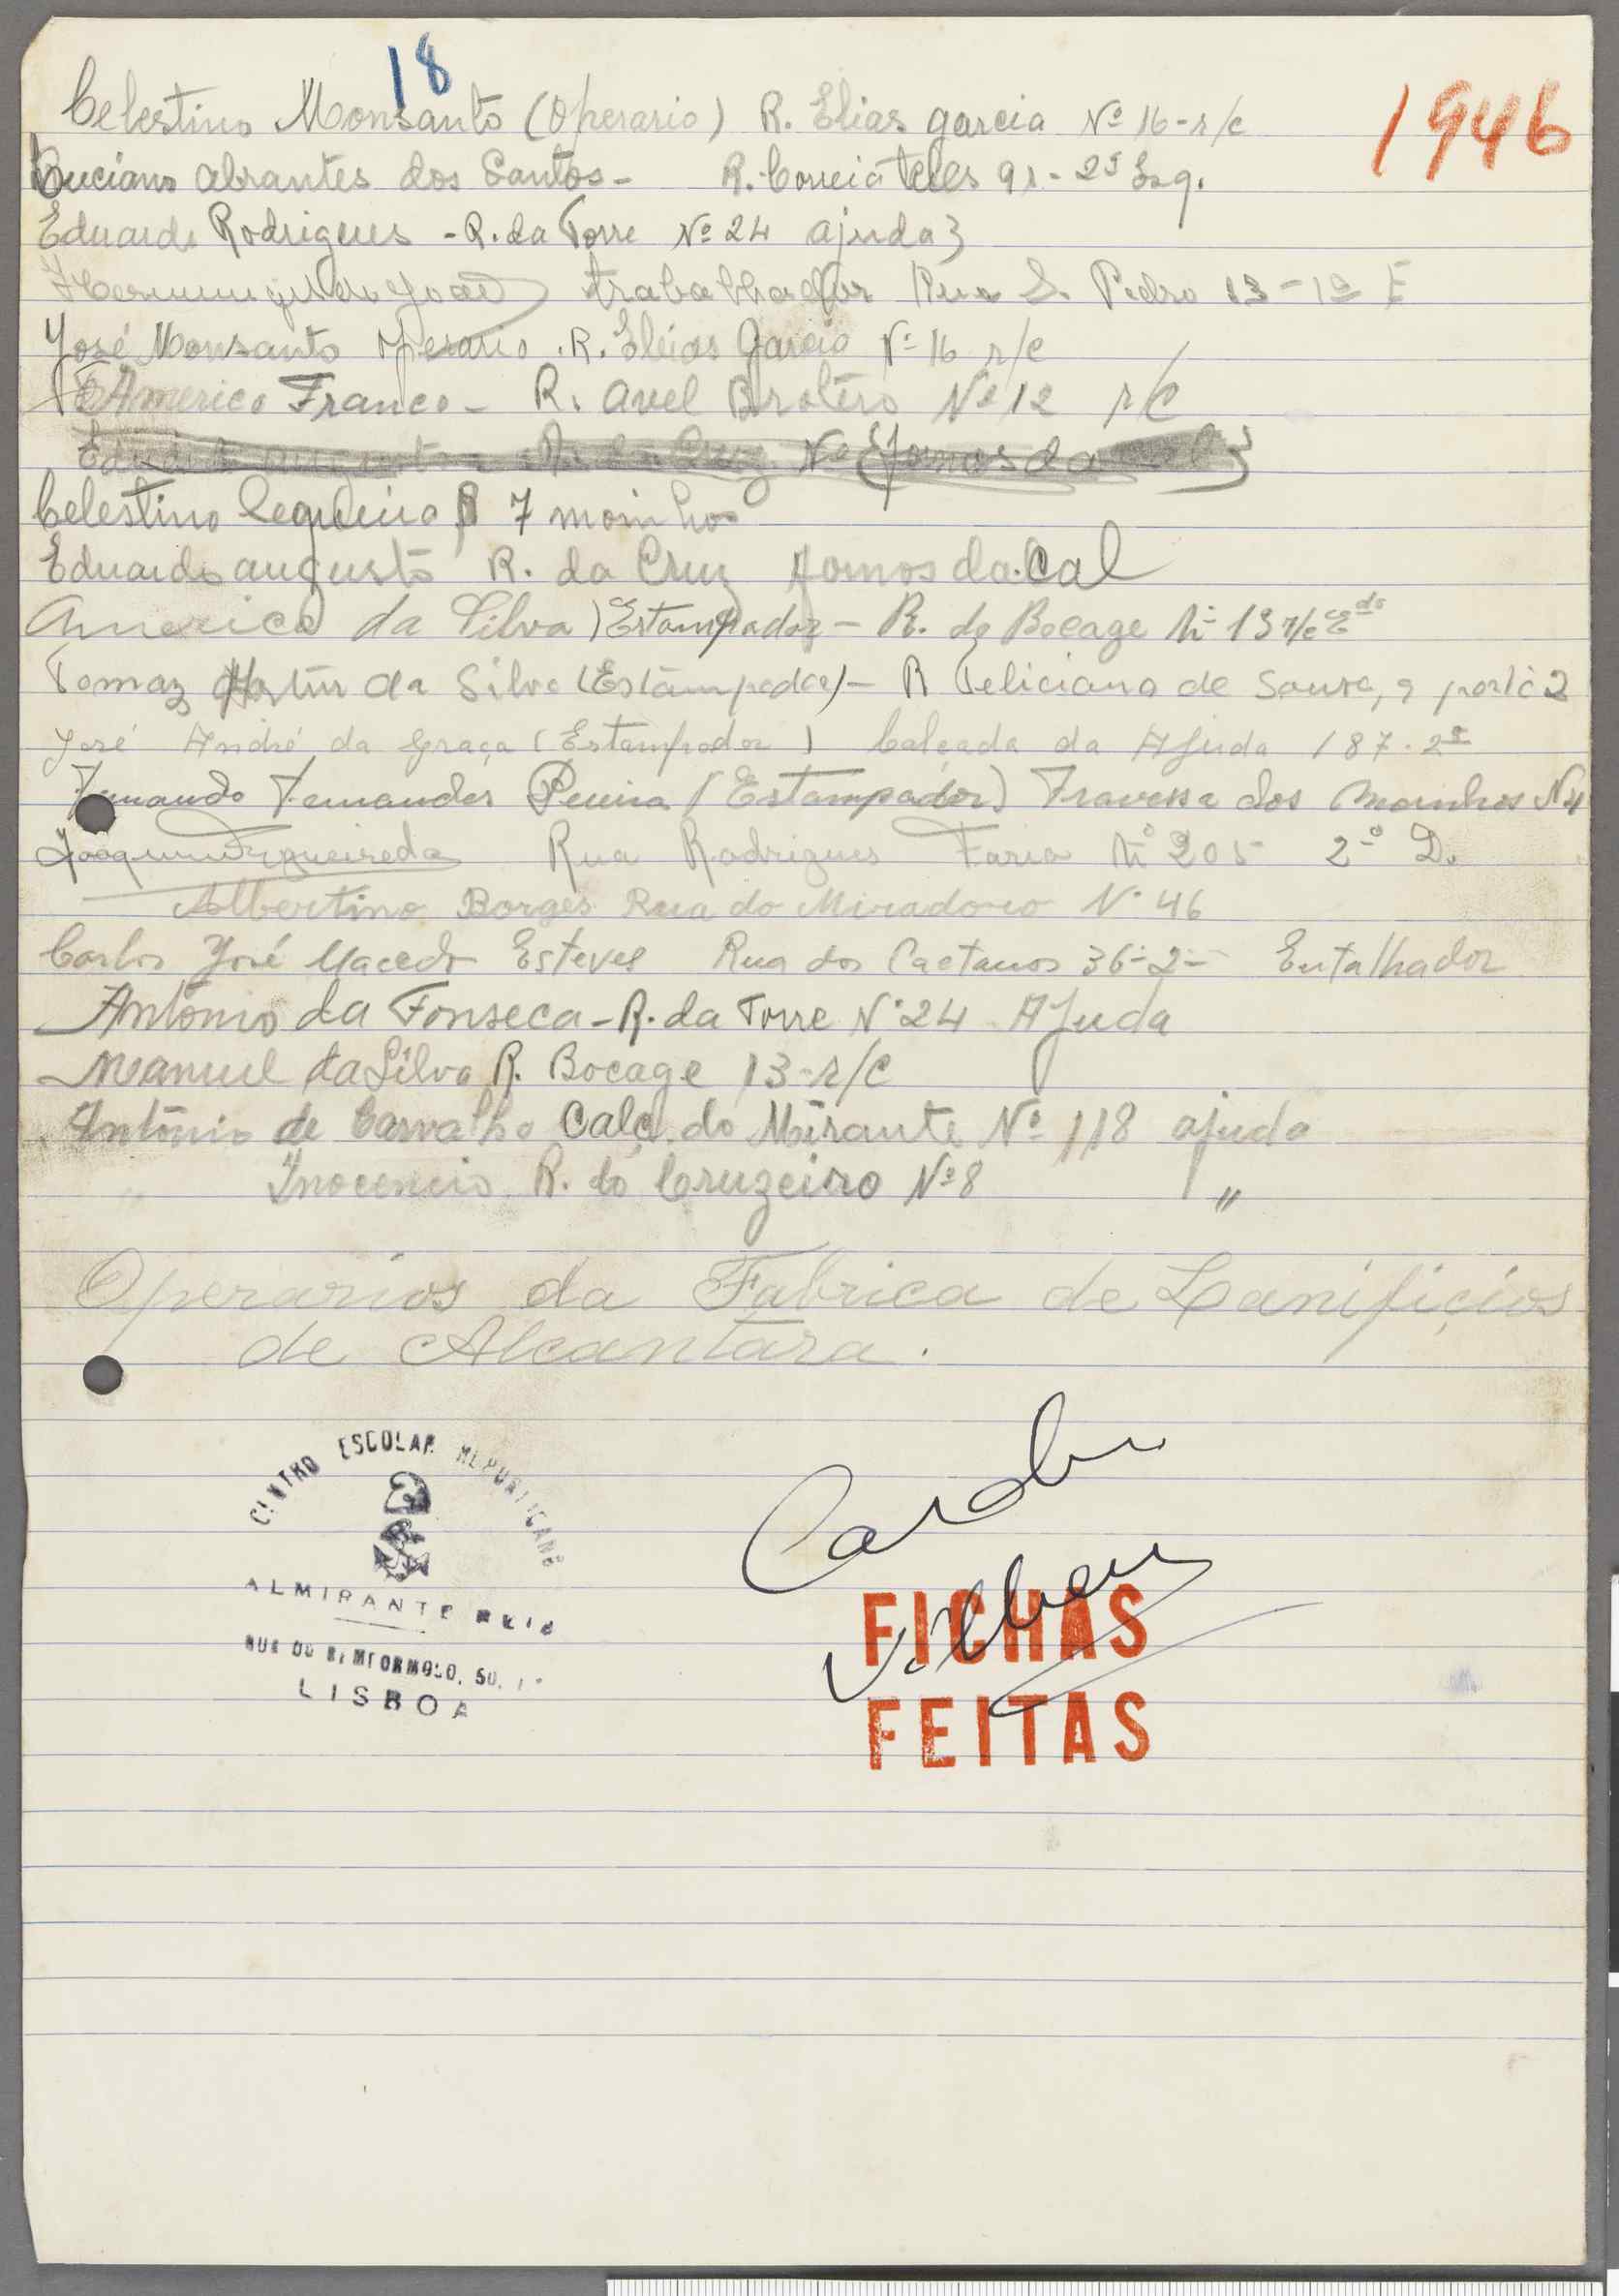 18
1946
Celestino Monsanto (Operario) R. Elias garcia Nº 16-r/c
Luciano abrantes dos Santos - R. Correia teles 91-2º Esq.
Eduardo Rodrigues - R. da Torre Nº 24 ajuda
trabalhador Rua S. Pedro 13-1º E
José Monsanto Operario. R. Elias Garcia Nº 16 r/c
Americo Franco - R. avel Brotero Nº 12 r/c
Celestino 7 moinhos
Eduardo augusto R. da Cruz fornos da Cal
America da Silva (Estampador - R. do Bocage Nº 13 r/c E do
Tomaz Artur da Silva (Estampador) - R Feliciano de Sousa, 9 porta 2
José André da Graça (Estampador) Calçada da Ajuda 187-2º
Fernando Fernandes Pereira (Estampador) Travessa dos Moinhos Nº4
Joaquim Figueiredo Rua Rodrigues Faria Nº 205 2º D.
Albertino Borges Rua do Miradoro Nº 46
Carlos José Macedo Esteves Rua dos Caetanos 36-2º Entalhador
António da Fonseca - R. da Torre Nº 24 Ajuda
Manuel da Silva R. Bocage 13-r/c
António de Carvalho Calç. do Mirante Nº 118 ajuda
" Inocencio R. do Cruzeiro Nº 8 "
Operarios da Fabrica de Lanificios
de Alcantara.
CENTRO ESCOLAR REPUBLICANO
ALMIRANTE REIS
RUA DO BEMFORMOSO, 50, 1º
LISBOA
FICHAS
FEITAS